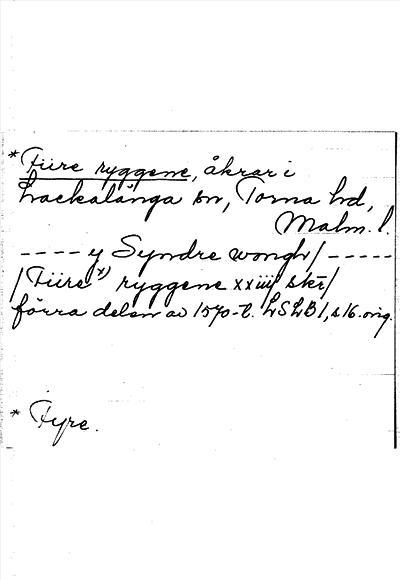 *Fiire ryggene, åkrar i
Lackalänga sn, Torna hd,
Malm. l.
---- y Syndre wongh/-----
/Fiire x) ryggene xxiiij skr/
förra delen av 1570-t. LSLB 1, s 16. orig.
* Fyre.